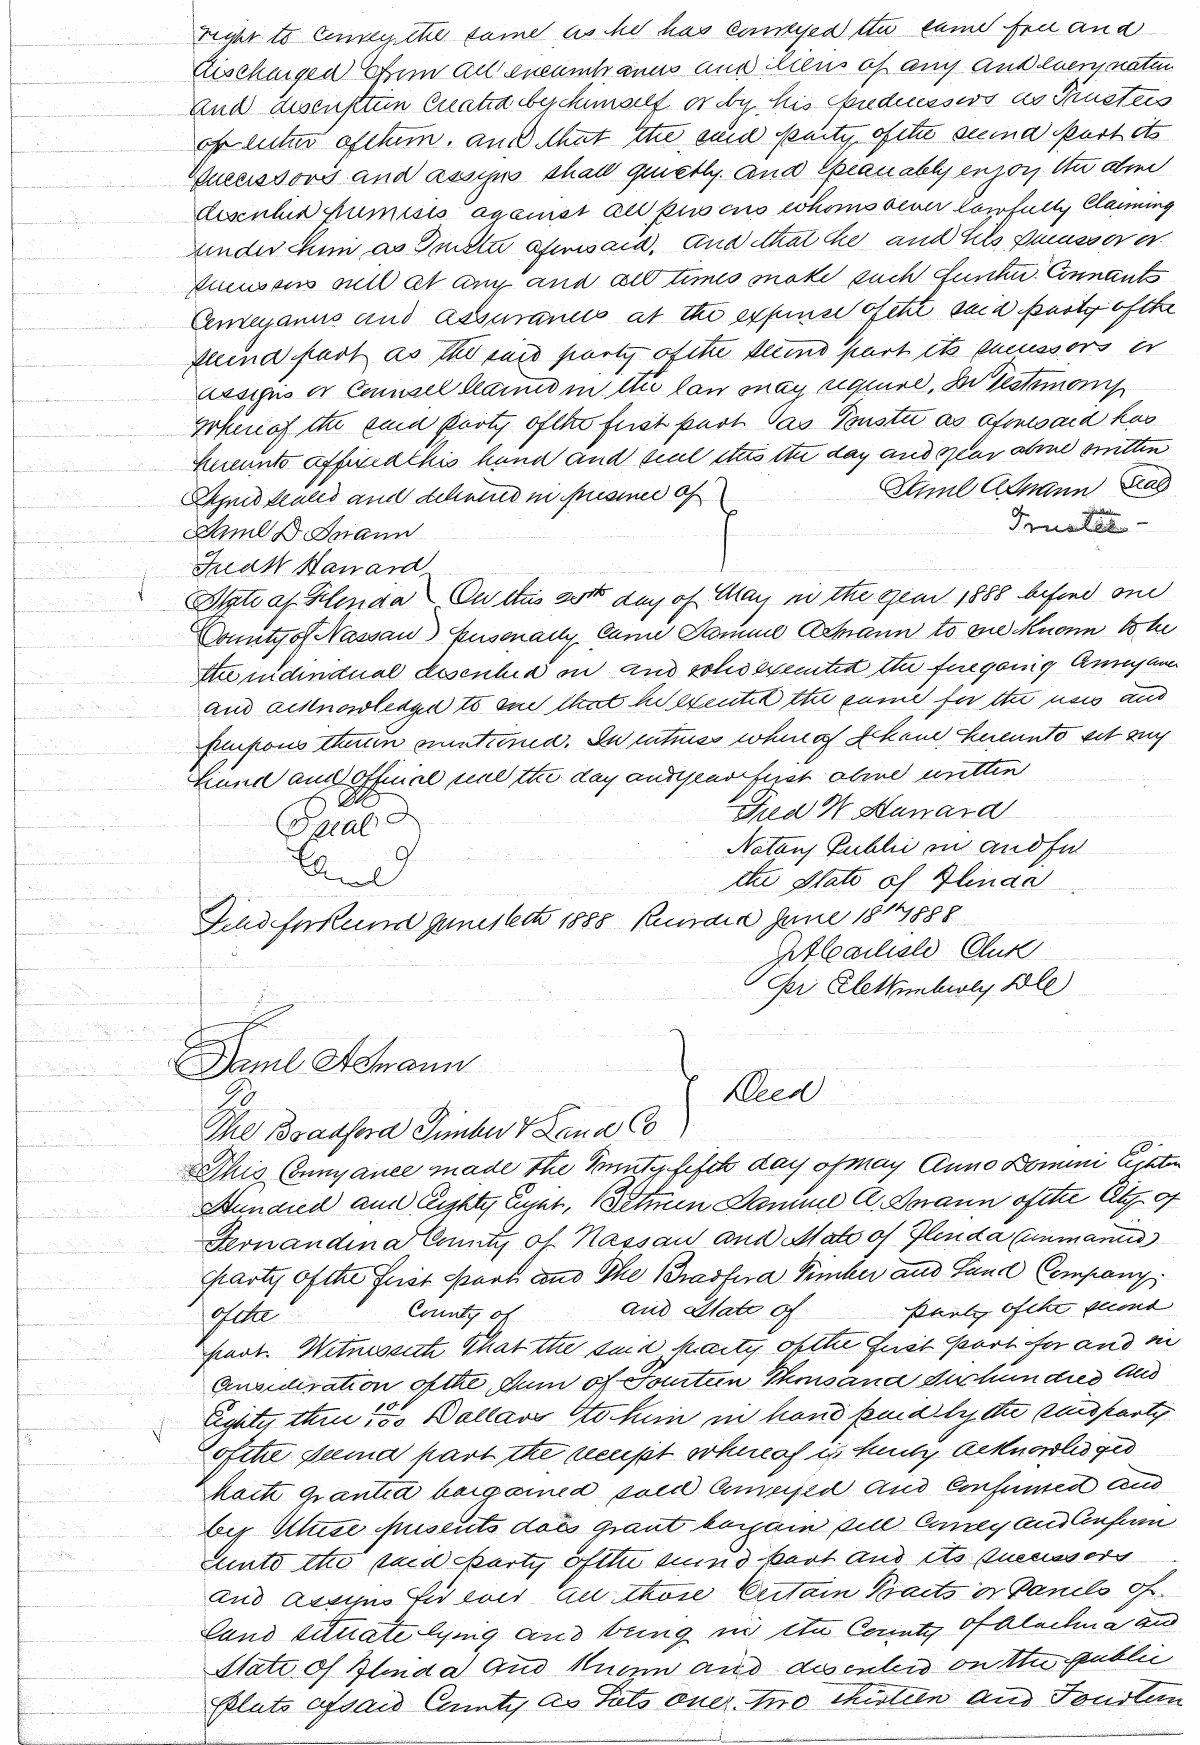 right to convey the same as he has conveyed the same free and
discharged from all encumbrances and liens of any and every natur
and description created by himself or by his predecessors as Trustees
or either of them. and that the said party of the second part its
successors and assigns shall quietly and peaceably enjoy the above
described premises against all persons whomsoever lawfully claiming
under him as Trustee aforesaid. and that he and his successor or
successors will at any and all times make such further Covenants
Conveyances and assurances at the expense of the said party of the
second part as the said party of the second part its successors or
assigns or Counsel learned in the law may require. In Testimony
whereof the said party of the first part as Trustee as aforesaid has
hereunto affixed his hand and seal this the day and year above written
Signed sealed and delivered in presence of } Saml A Swann Seal
Saml D. Swann Trustee -
Fred W Harrard
State of Florida } On this 25th day of May in the year 1888 before me
County of Nassau } personally came Samuel A Swann to me Known to be
the individual described in and who executed the foregoing Conveyance
and acknowledged to me that he executed the same for the uses and
purposes therein mentioned. In witness whereof I have hereunto set my
hand and official seal the day and year first above written
Seal Fred W Harrard
Notary Public in and for
the State of Florida
Filed for Record June 16th 1888 Recorded June 18th 1888
Carlisle Clerk
Per Wimberly D C
Saml A Swann
To } Deed
The Bradford Timber & Land Co
This Conveyance made the Twenty fifth day of May Anno Domini Eighteen
Hundred and Eighty Eight, Between Samuel A. Swann of the City of
Fernandina County of Nassau and State of Florida (unmarried)
party of the first part and The Bradford Timber and Land Company
of the County of and State of party of the second
part. Witnesseth that the said party of the first part for and in
Consideration of the Sum of Fourteen Thousand six hundred and
Eighty three 10/100 Dollars to him in hand paid by the said party
of the second part the receipt whereof is hereby acknowledged
hath granted bargained sold conveyed and confirmed and
by these presents does grant bargain sell convey and Confirm
unto the said party of the second part and its successors
and assigns for ever all those Certain Tracts or Parcels of
land situate lying and being in the County of Alachua and
State of Florida and Known and described on the public
Plats of said County as Lots one. two thirteen and Fourteen